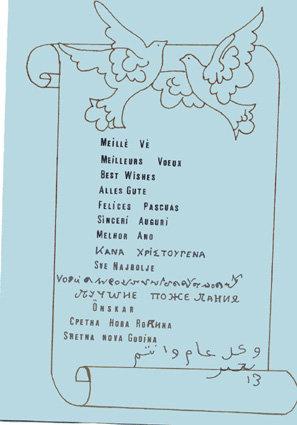 MEILLÉ VÈ
MEILLEURS VOEUX
BEST WISHES
ALLES GUTE
FELICES PASCUAS
SINCERI AUGURI
MELHOR ANO
ΚΑΝΑ ΧΡΙΣΤΟΥΓΕΝΑ
SVE NAJBOLJE
ЛУЧШИЕ ПОЖЕЛАНИЯ
ÖNSKAR
СРЕТНА НОВА
SRETNA NOVA GODINA
وكل عام وانتم
بخير
13